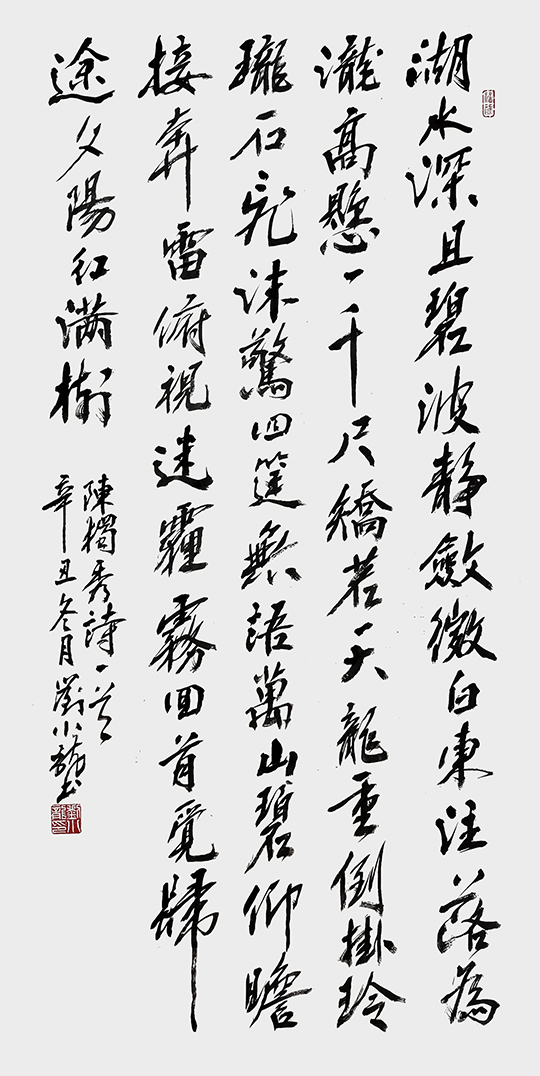 湖水深且碧波静斂微白東注落為
瀧高懸一千尺矯若天龍垂倒掛玲
瓏石乳沫驚四筵無語萬山碧仰瞻
接奔雷俯視迷霾霧回首覓歸
途夕陽紅滿樹
陳獨秀詩一首
辛丑冬月劉小龍書